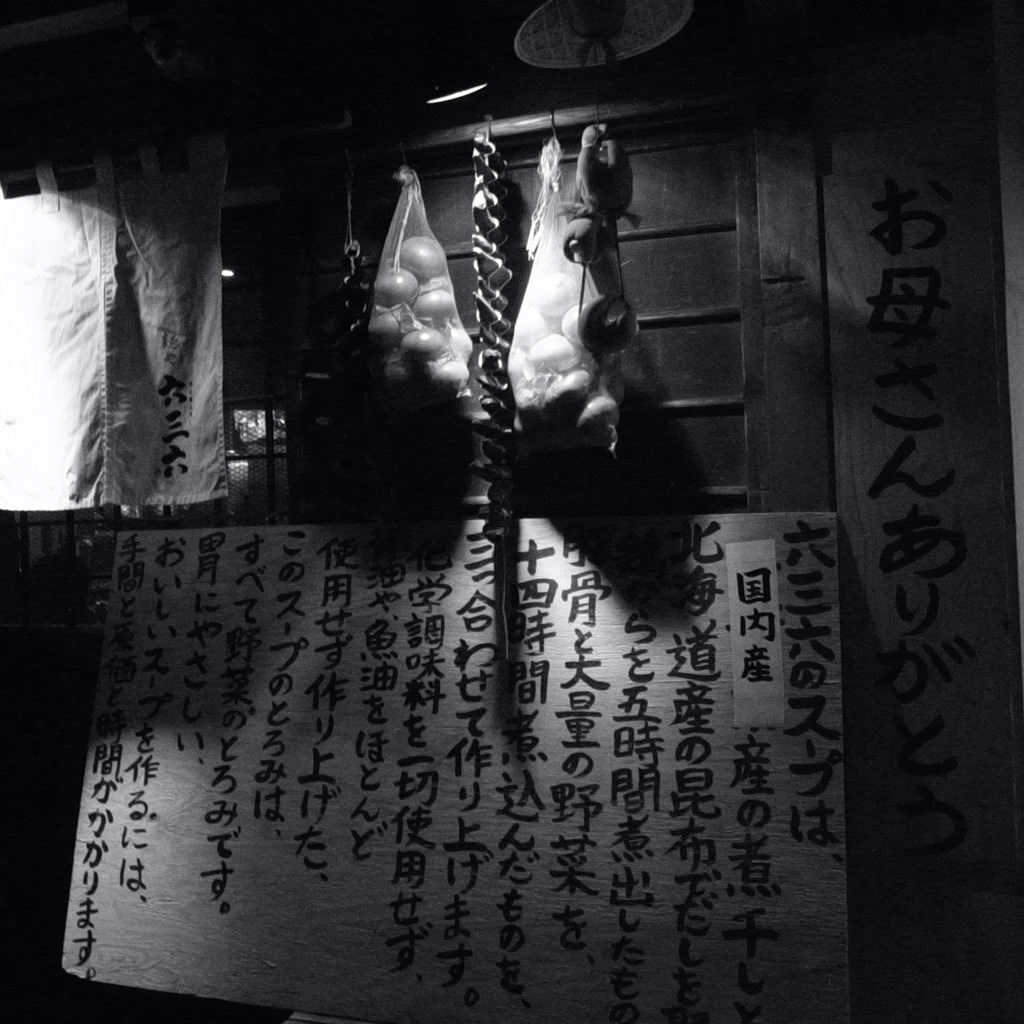 お母さんありがとう
六三六のスープは、
国内産
産の煮干しと
北海道産の昆布でだしを
らを五時間煮出したもの
骨と大量の野菜を、
十四時間煮込んだものを、
三つ合わせて作り上げます。
化学調味料を一切使用せず、
油や魚油をほとんど
使用せず作り上げた、
このスープのとろみは、
すべて野菜のとろみです。
胃にやさしい、
おいしいスープを作るには、
手間と原価と時間がかかります。
六三六